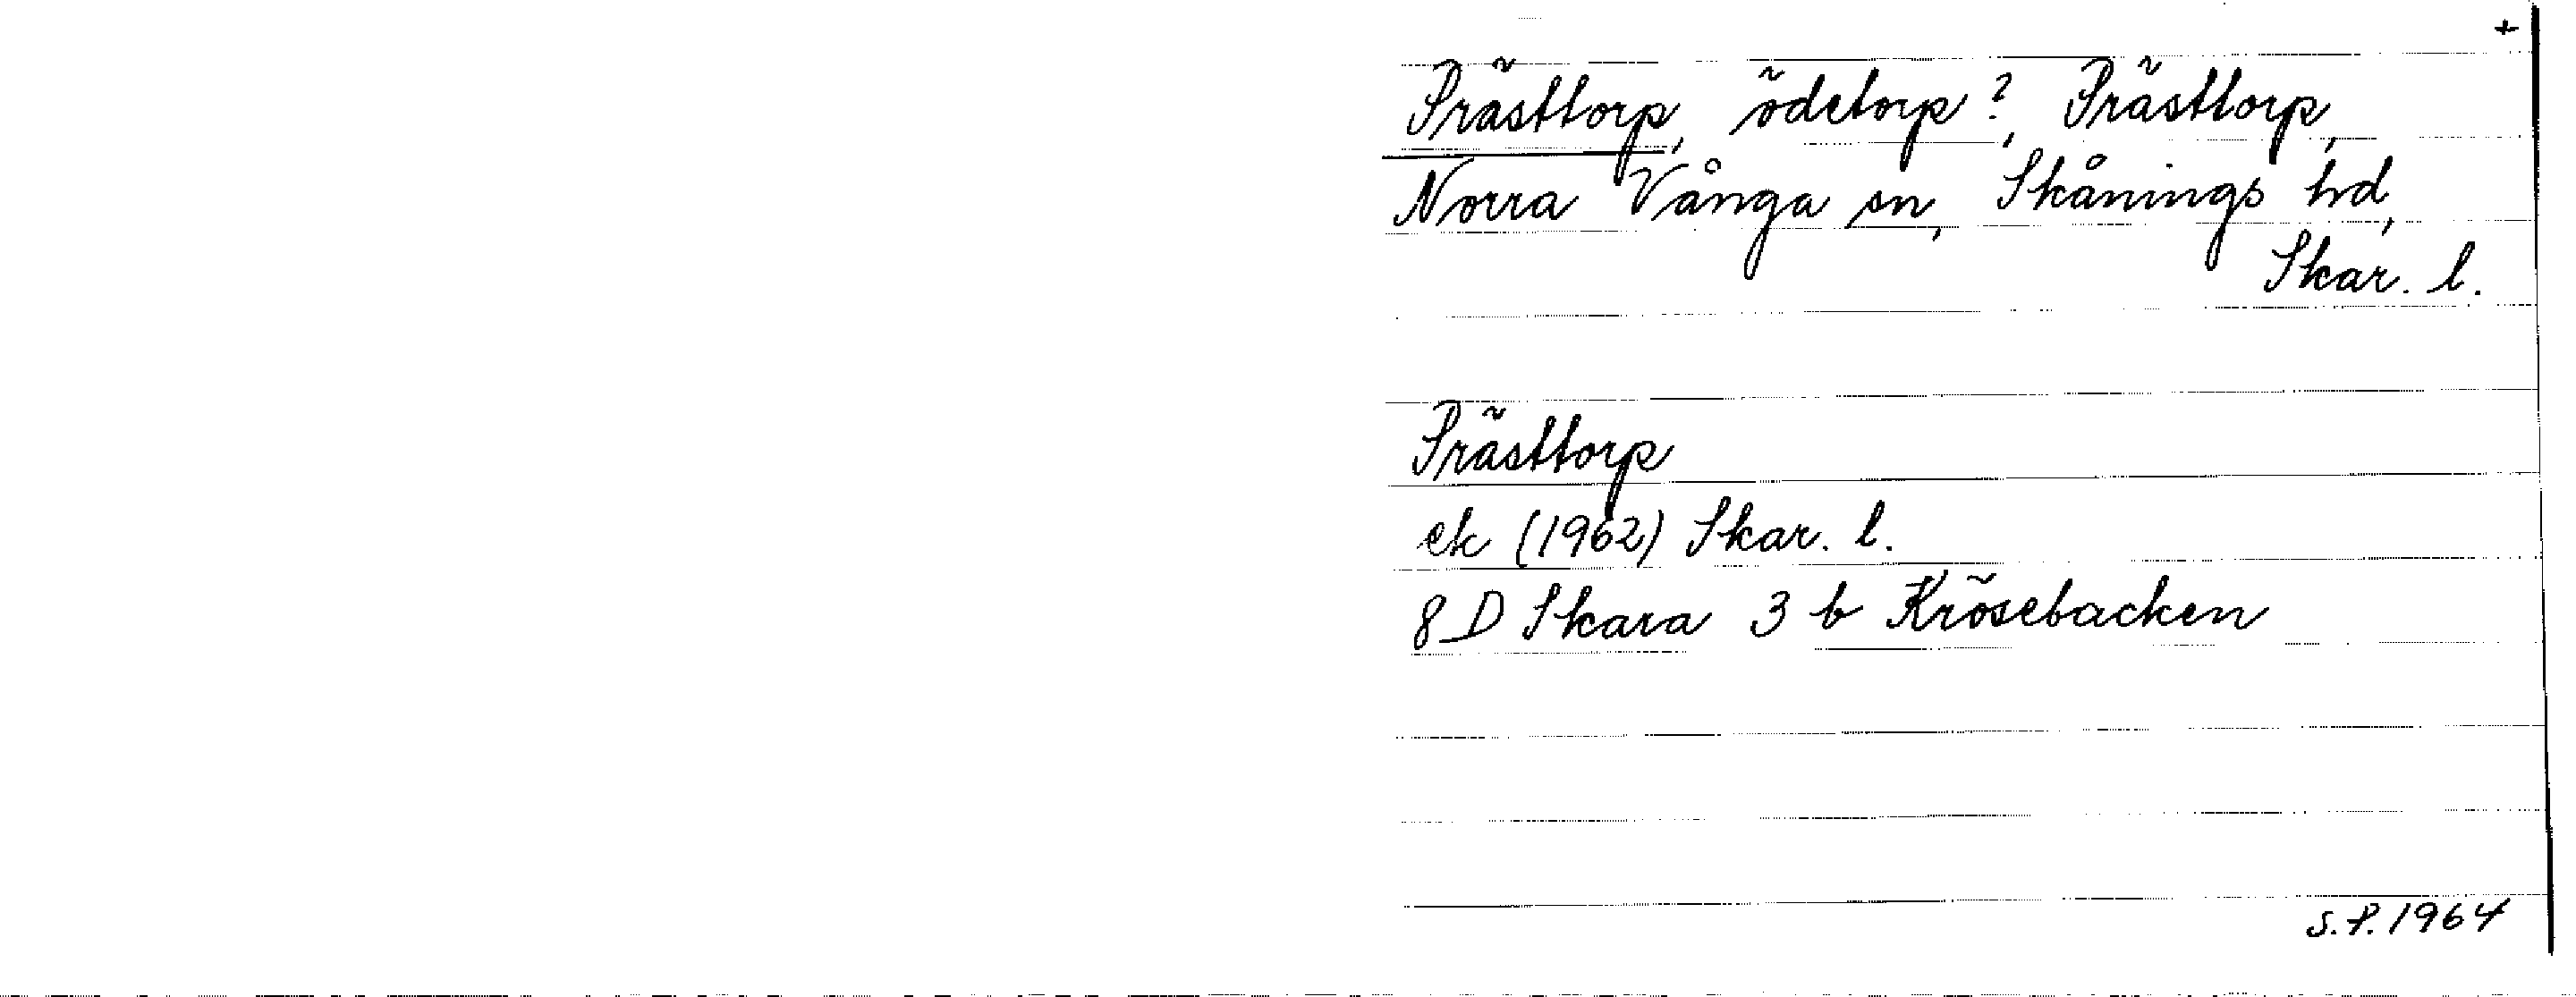 +
Prästtorp, ödetorp?, Prästtorp,
Norra Vånga sn, Skånings hd,
Skar. l.
Prästtorp
ek (1962) Skar. l.
8 D Skara 3 b Krösebacken
S.P. 1964